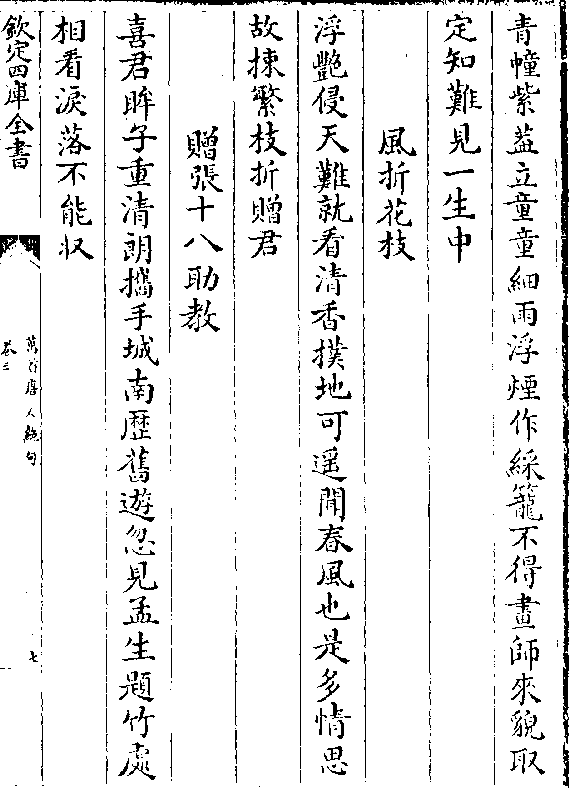 青幢紫葢立童童細雨浮煙作綵籠不得畫師來貌取
定知難見一生中
風折花枝
浮艷侵天難就看清香撲地可遥聞春風也是多情思
故揀繁枝折贈君
贈張十八助教
喜君眸子重清朗攜手城南歴舊遊忽見孟生題竹處
相看淚落不能収
欽定四庫全書
萬首唐人絶句
卷三
七